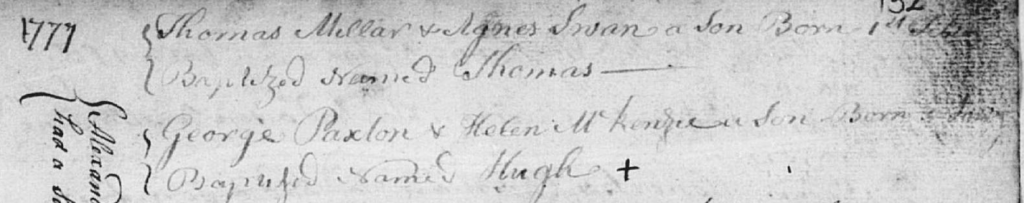 132
1777
Thomas Millar & Agnes Swan a Son Born 1st
Baptized Named Thomas —
George Paxton & Helen McKenzie a Son Born
Baptized Named Hugh +
Alexand
had a